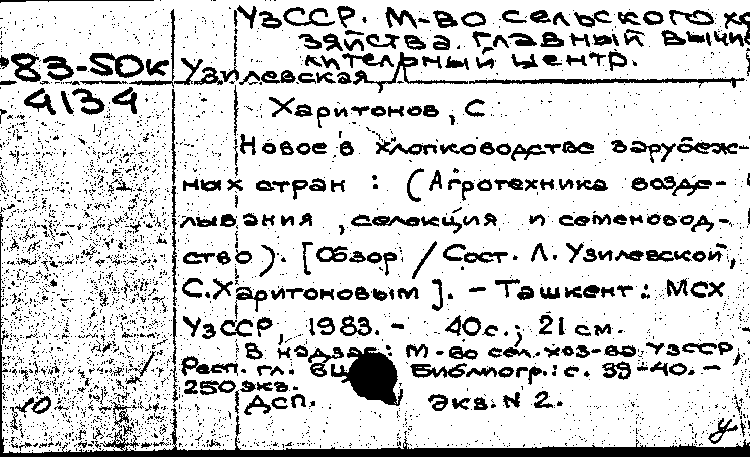 УзССР. М-во сельского хо
зяйства. Главный вычис
83-50к
лительный центр.
Узилевская, Л
4134
Харитонов, С
Новое в хлопководстве зарубеж-
ных стран : (Агротехника возде-
лывания, селекция и семеновод-
ство). [Обзор / Сост. Л. Узилевской,
С. Харитоновым]. - Ташкент: МСХ
УзССР, 1983. - 40 с.; 21 см.
В надзаг: М-во сел. хоз-ва УзССР,
Респ. гл. ВЦ. Библиогр.: с. 39-40. -
250 экз.
10
ДСП. Экз. N 2.
У